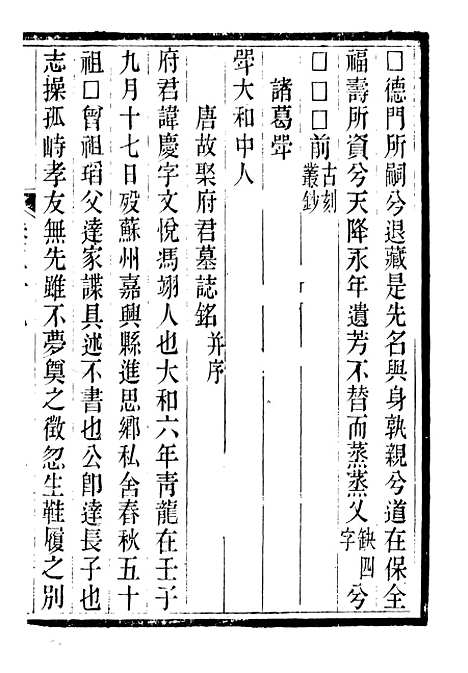 □德門所祠兮退藏是先名與身孰親兮道在保全
福壽所資兮天降永年遺芳不替而蒸蒸父缺四字兮
□□□前古刻叢鈔
諸葛犖
犖大和中人
唐故聚府君墓誌銘并序
府君諱慶字文悅馮翊人也大和六年靑龍在壬子
九月十七日歿蘇州嘉興縣進思鄉私舍春秋五十
祖□曾祖瑫父達家諜具述不書也公卽達長子也
志操孤峙孝友無先雖不夢奠之徵忽生鞋履之別